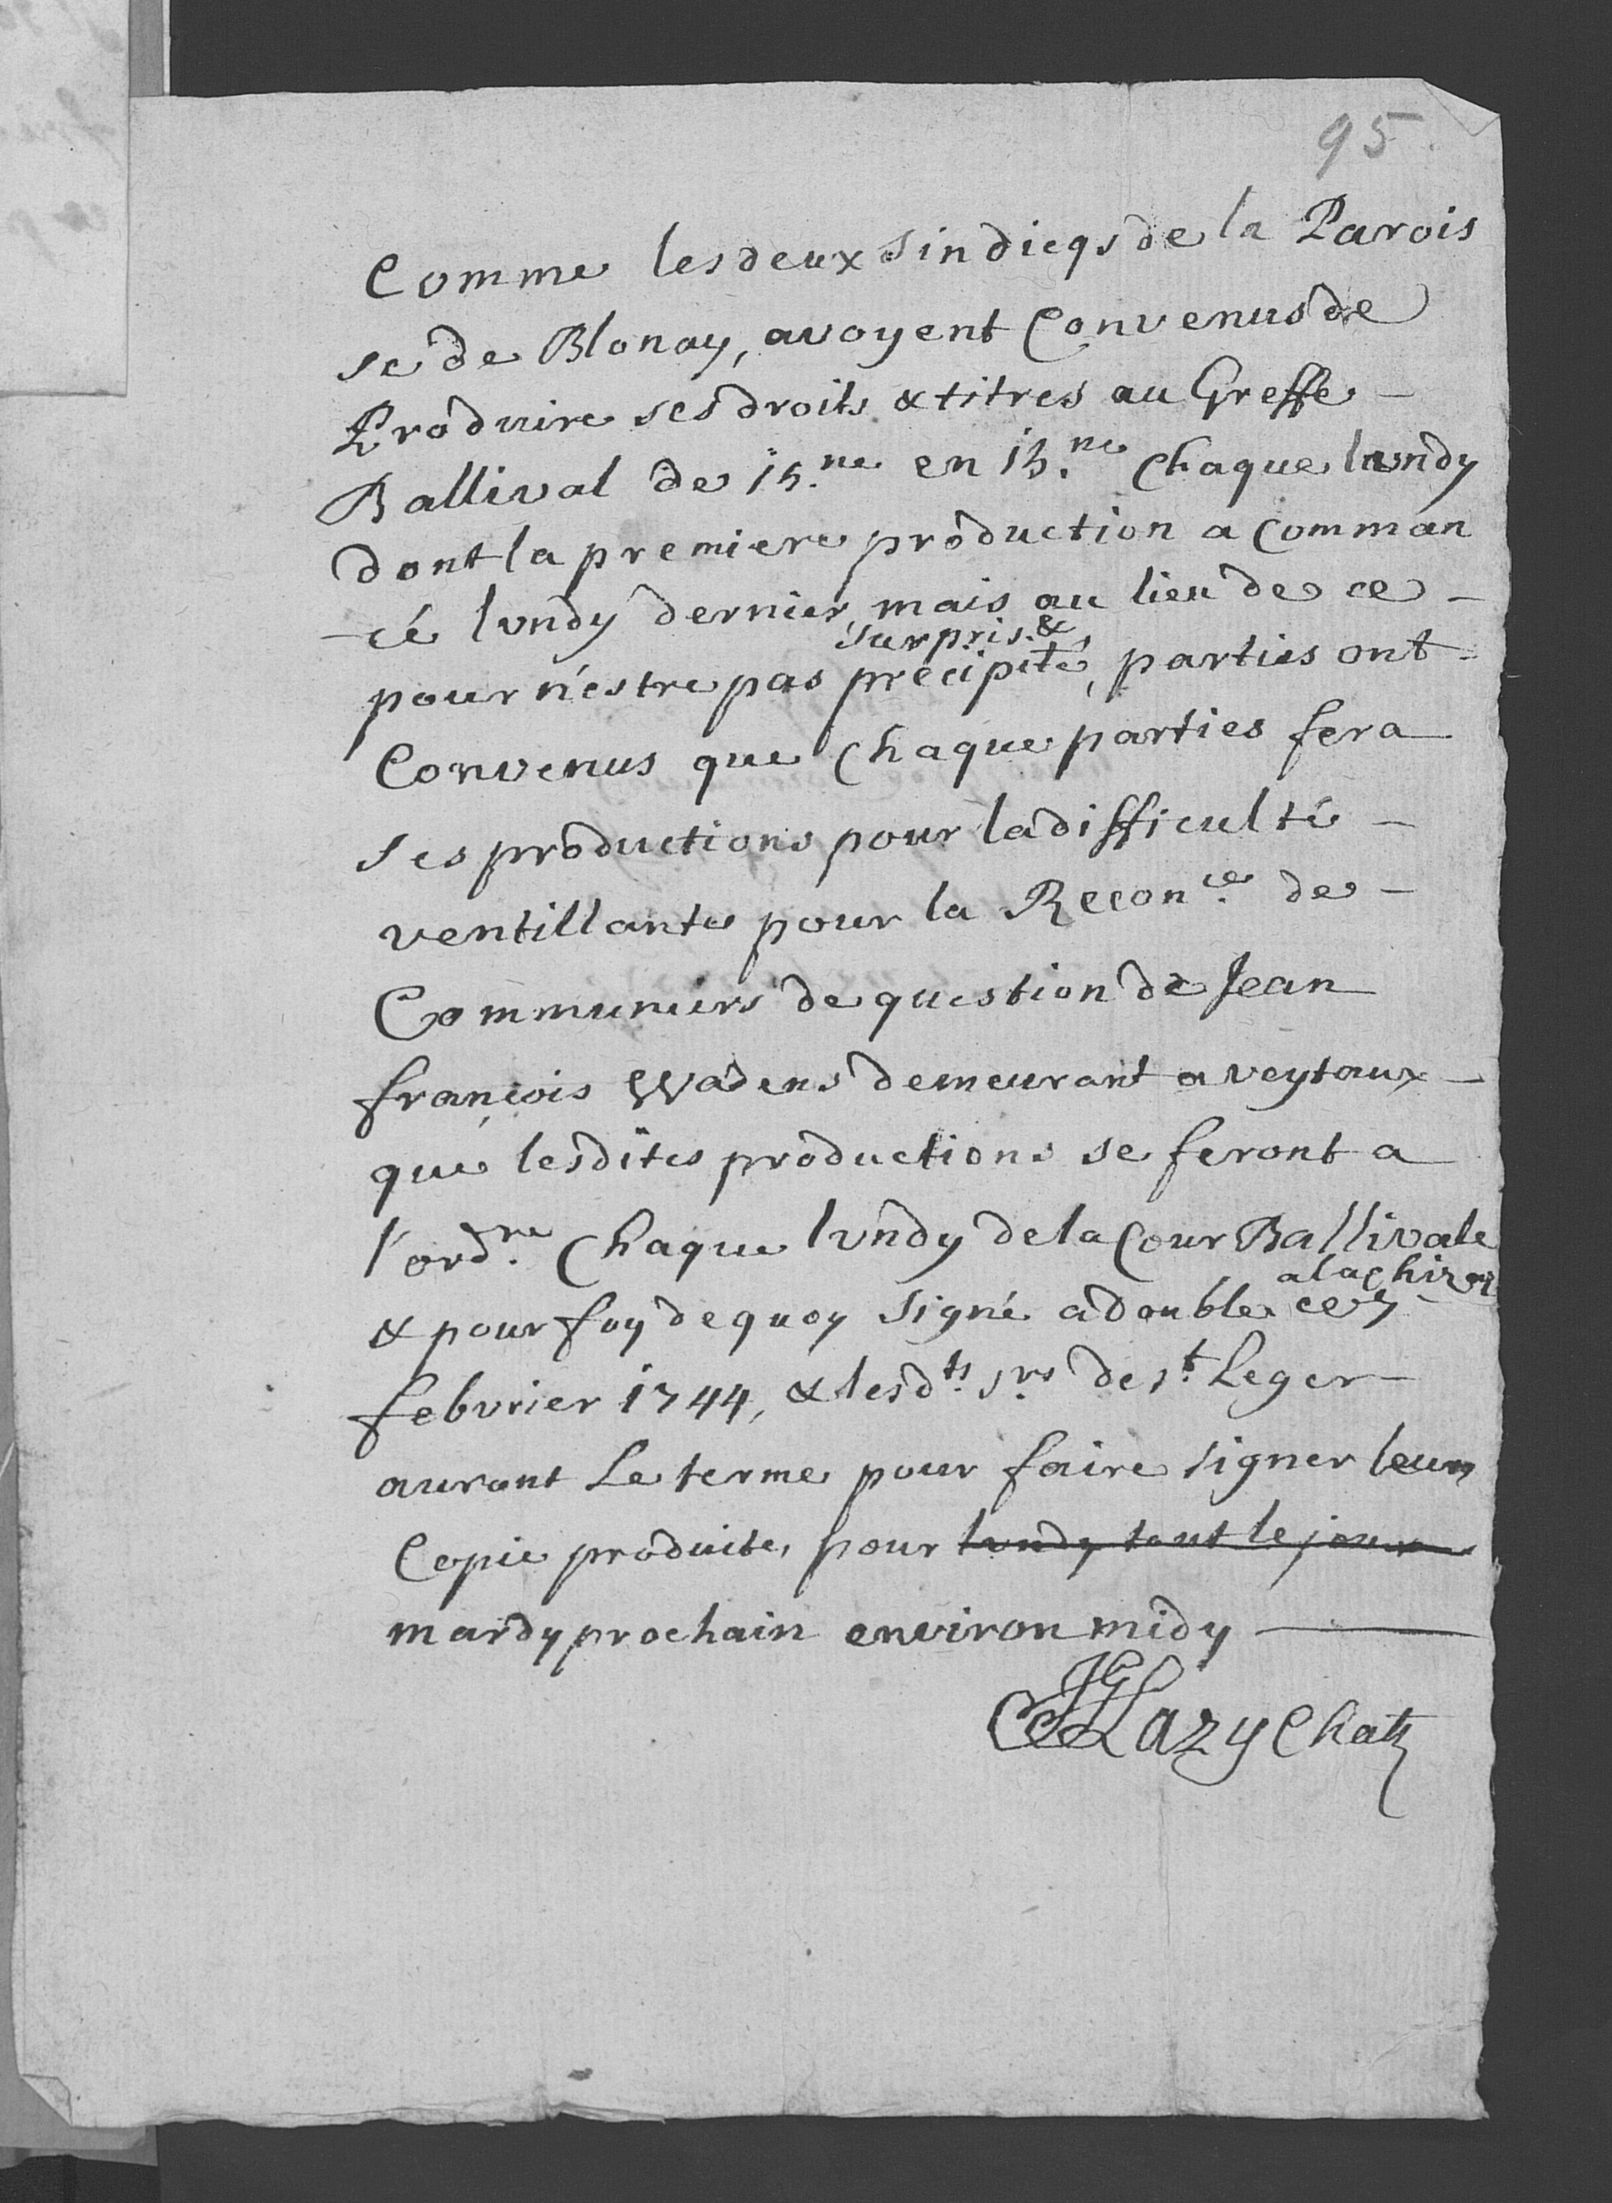 95.
Comme les deux sindicqs de la Parois
se de Blonay, avoyent Convenus de
Produire ses droits & titres au Greffe -
Ballival de 15.ne en 15.ne Chaque lundy
dont la premiere production a comman
-cé lundy dernier, mais au lieu de ce -
surpris &
pour n'estre pas precipité, parties ont -
Convenus que Chaque parties fera
ses productions pour la difficulté -
ventillante pour la Recon.ce de -
Communiers de question de Jean
françois Wadens demeurant a veytaux -
que lesdites productions se feront a
l'ord.re Chaque lundy de la Cour Ballivale
a la chiz
& pour foy de quoy signé a double ce 7
febvrier 1744, & lesd.ts s.rs de s.t Leger -
auront Le terme pour faire signer leurs
Copie produite, pour lundy tout le jour
mardy prochain environ midy —
JG Lazy Chatz